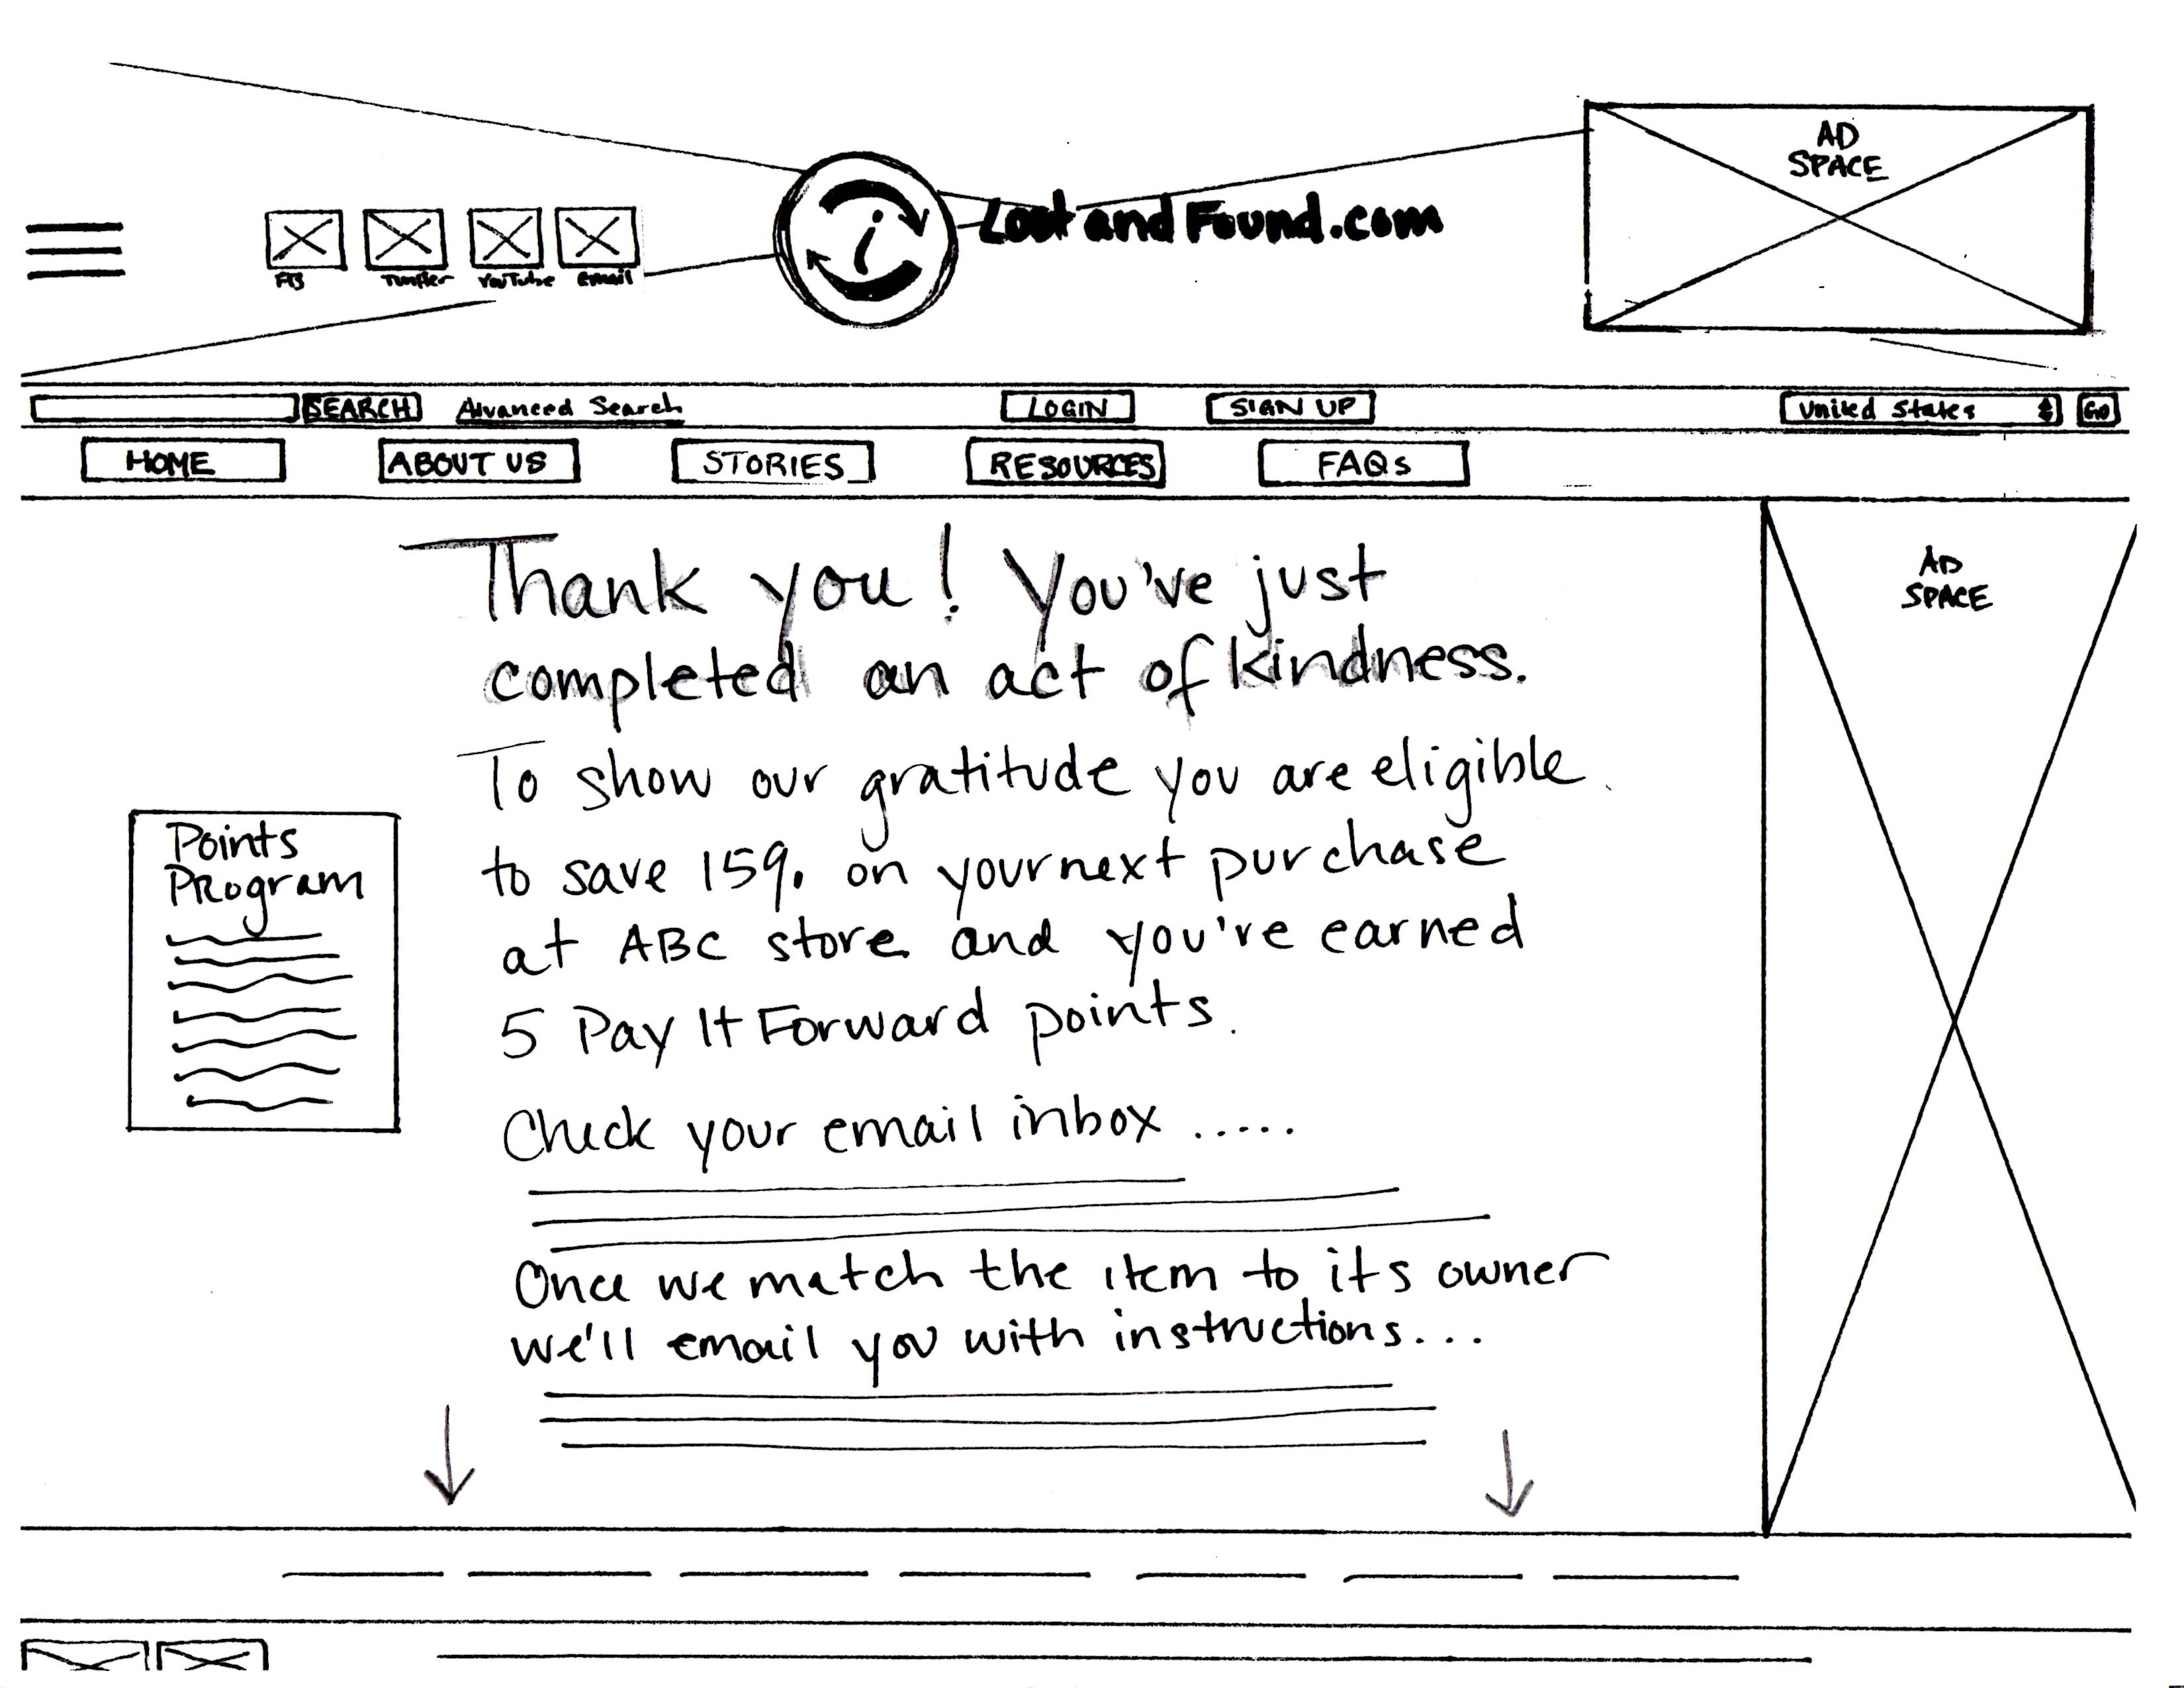 AD
SPACE
i
LostandFound.com
FB
Twitter
YouTube
Email
SEARCH
Advanced Search
LOGIN
SIGN UP
United States
GO
HOME
ABOUT US
STORIES
RESOURCES
FAQs
Thank you! You've just
completed an act of kindness.
To show our gratitude you are eligible
to save 15%. on your next purchase
at ABC store and you've earned
5 Pay It Forward points.
Check your email inbox .....
Once we match the item to its owner
we'll email you with instructions...
Points
Program
AD
SPACE